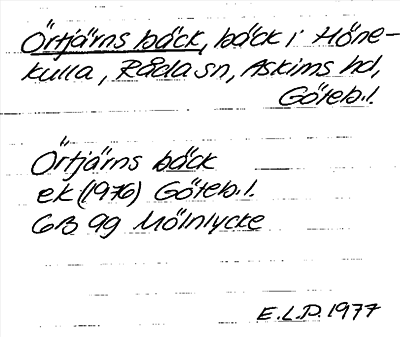 Örtjärns bäck, bäck i Höne-
kulla, Råda sn, Askims hd,
Göteb.l.
Örtjärns bäck
ek (1976) Göteb.l.
6B 9g Mölnlycke
E.L.P. 1977